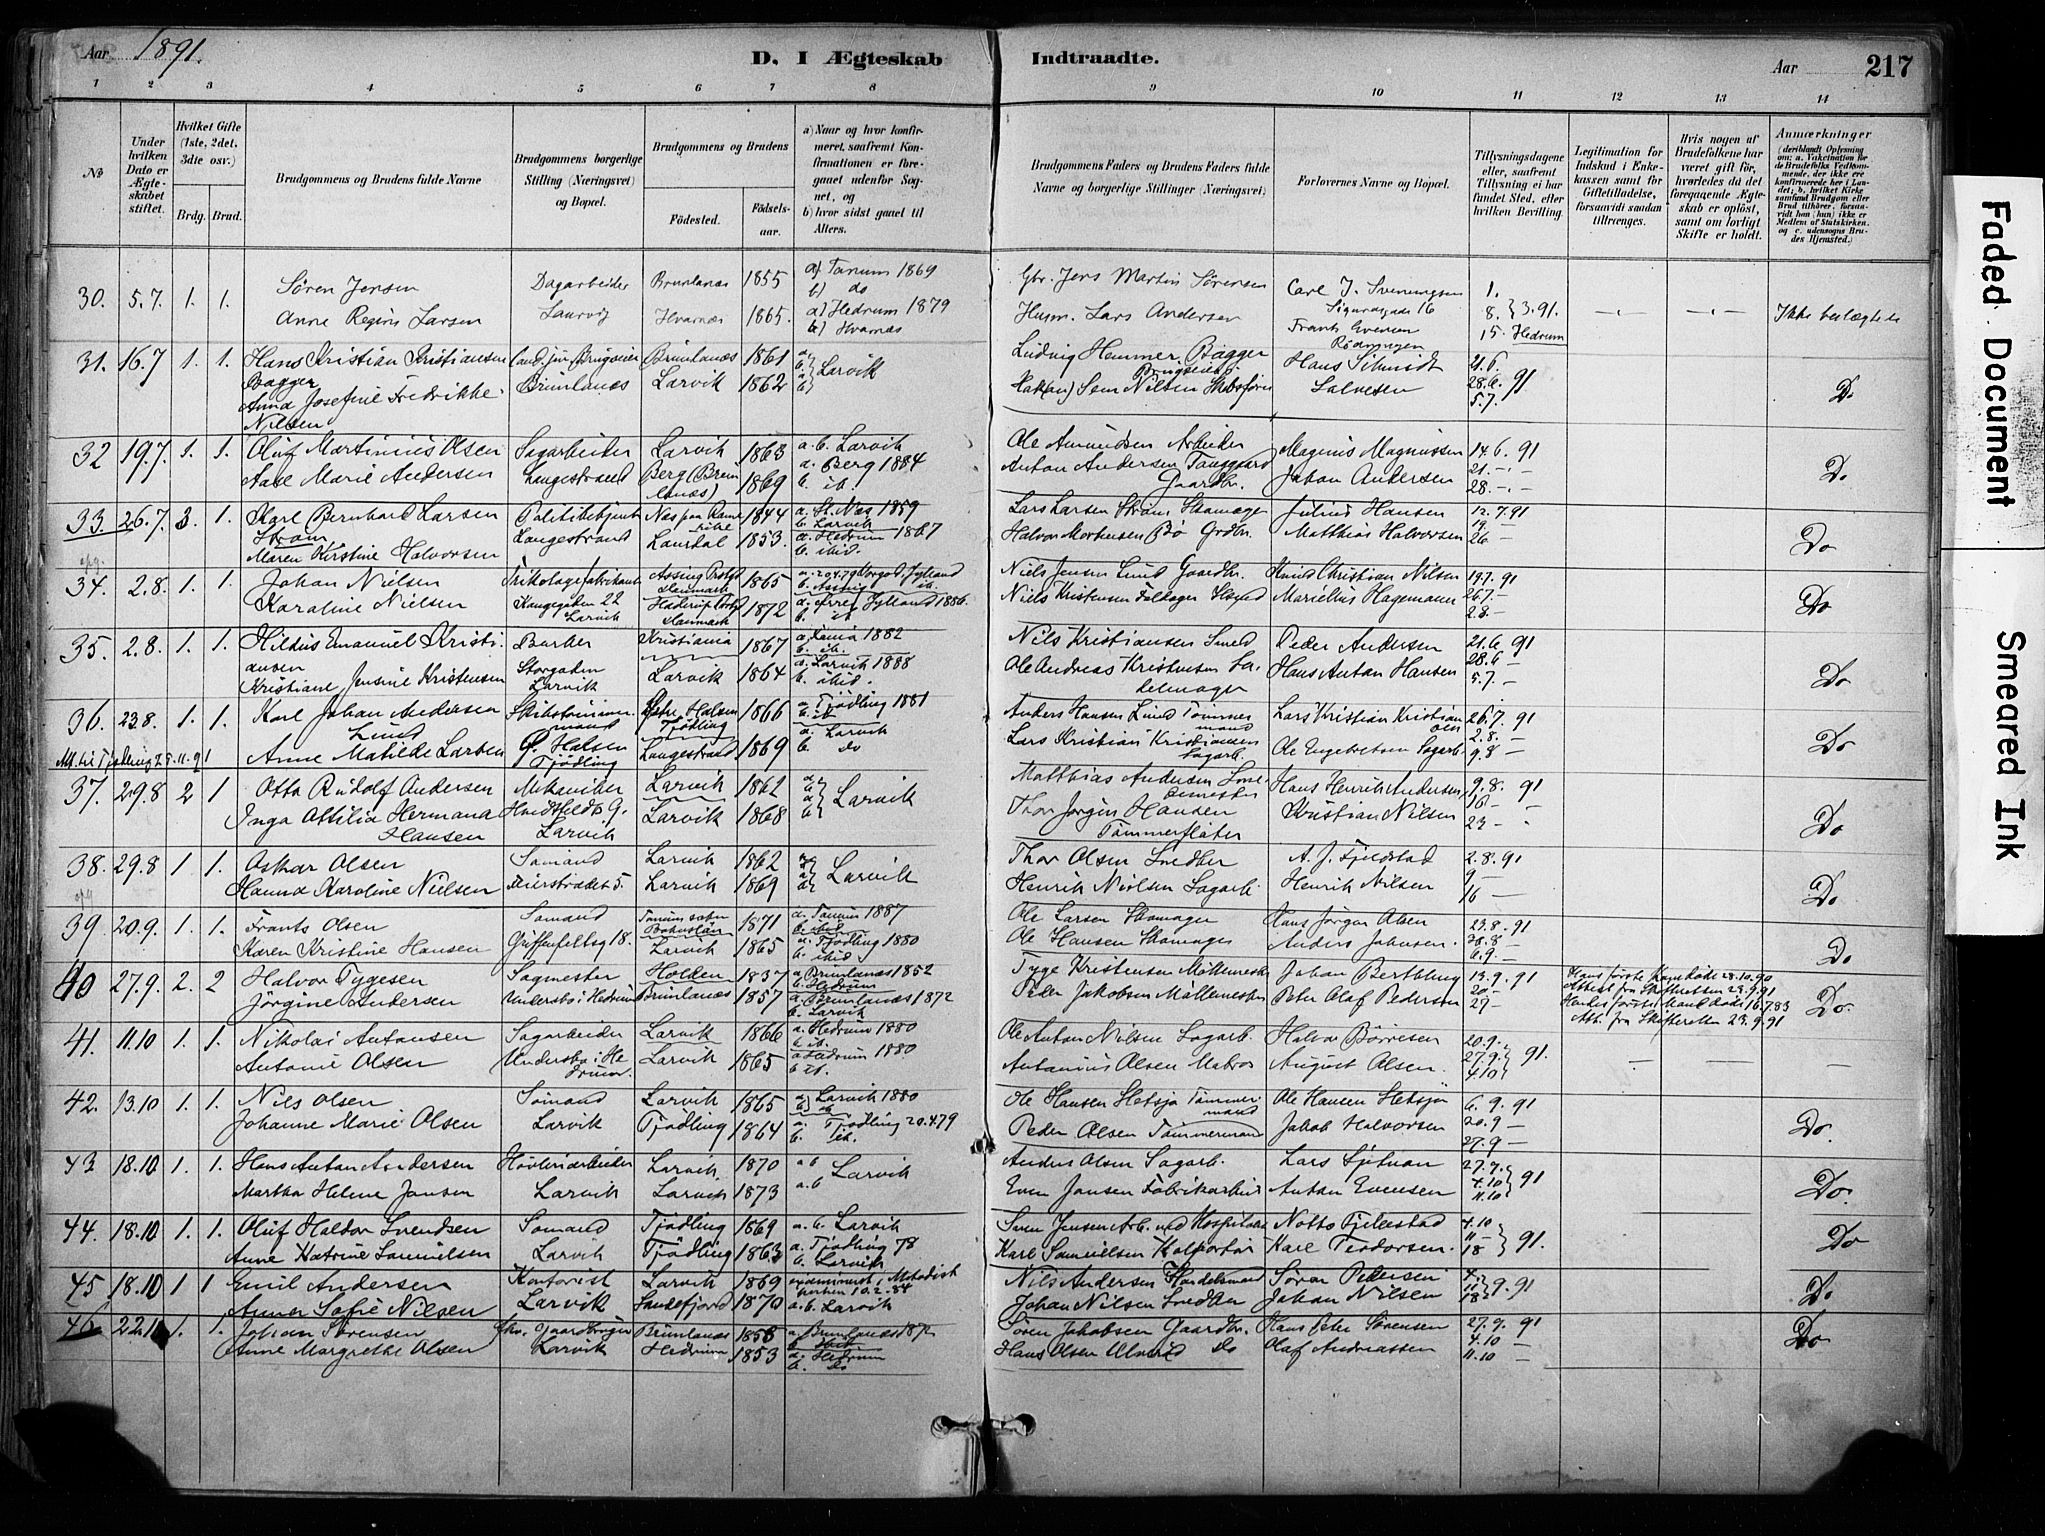 Aar 1891. D. I Ægteskab Indtraadte. Aar 217
1 2 3 4 5 6 7 8 9 10 11 12 13 14
No
Under hvilken Dato er Ægteskabet stiftet.
Hvilket Gifte (1ste, 2det, 3dte osv.)
Brdg. Brud.
Brudgommens og Brudens fulde Navne
Brudgommens borgerlige Stilling (Næringsvei) og Bopæl.
Brudgommens og Brudens
Fødested. Fødselsaar.
a) Naar og hvor konfirmeret, saafremt Konfirmationen er foregaaet udenfor Sognet, og
b) hvor sidst gaaet til Alters.
Brudgommens Faders og Brudens Faders fulde Navne og borgerlige Stillinger (Næringsvei)
Forlovernes Navne og Bopæl.
Tillysningsdagene eller, saafremt Tillysning ei har fundet Sted, efter hvilken Bevilling.
Legitimation for Indskud i Enkekassen samt for Giftetilladelse, forsaavidt saadan tiltrænges.
Hvis nogen af Brudefolkene har været gift før, hvorledes da det foregaaende Ægteskab er opløst, samt om lovligt Skifte er holdt.
Anmærkninger
30. 5.7. 1. 1. Søren Jensen Dagarbeider Brunlanæs 1855 a) Tanum 1869 b) do Gbr. Jens Martin Sørensen Carl J. Sveningsen 1.
Anne Regine Larsen Laurvig Hvarnæs 1865. a) Hedrum 1879 b) Hvarnæs Husm. Lars Andersen 8. 3.91 15. Hedrum Ikke beslægtede
31. 16.7 1. 1. Hans Kristian Kristiansen Bagger Brunlanæs Brunlanæs 1861 Larvik Ludvig Hemmer Bagger Hans Schmidt 21.6.
Anna Josefine Fredrikke Nilsen Larvik 1862 Sem Nilsen Salvesen 28.6. 91 5.7. Do
32 19.7. 1. 1. Oluf Martinius Olsen Sagarbeider Larvik 1863 a.b. Larvik Ole Amundsen Arbeider Magnus Magnussen 14.6.91
Marie Andersen Langestrand Berg (Brunlanæs) 1869 a. Berg 1884 b. ib. Anton Andersen Gaardbr. Johan Andersen 21. 28. Do
33 26.7. 3. 1. Karl Bernhard Larsen Strøm Politibetjent 1844 1859 b. Larvik Lars Larsen Strøm Skomager Julius Hansen 12.7.91
Maren Kirstine Halvorsen Langestrand Laurdal 1853. a. Hedrum 1867 b. ibid. Halvor Mortensen Bø Grdbr. Matthias Halvorsen 19 26 Do
34. 2.8. 1. 1. Johan Nielsen Trikotagefabrikant Danmark 1865 Niels Jensen Lund Gaardbr. Knud Christian Nilsen 19.7.91
Karoline Nielsen Kongegaden 22 Larvik Danmark 1872 Jylland 1886. b. ib Niels Kristensen Marelius Hagemann 26.7 2.8 Do
35. 2.8. 1. 1. Hildus Emanuel Kristiansen Barber Kristiania 1867 1882 b. ib. Nils Kristiansen Smed Peder Andersen 21.6.91
Kristiane Jensine Kristensen Storgaden Larvik Larvik 1864 a. Larvik 1888 b. ibid. Ole Andreas Kristensen Hans Anton Hansen 28.6 5.7. Do
36. 23.8. 1. 1. Karl Johan Andersen Lund Skibstømmermand Halsen Tjødling 1866 a. Tjødling 1881 b. ib Anders Hansen Lund Tømmermand Lars Kristian Kristiansen 26.7. 91
Att. til Tjødling 25.11.91 Anne Matilde Larsen Ø. Halsen Tjødling Langestrand 1869 a. Larvik b. do Lars Kristian Kristiansen Sagarb. Ole Engebretsen Sagarb. 2.8. 9.8 Do
37. 29.8 2 1 Otto Rudolf Andersen Mekaniker Larvik 1862 Larvik Matthias Andersen Hans Henrik Andersen 9.8. 91
Inga Attilia Hermana Hansen Hvidtfeldts g. Larvik Larvik 1868 Thor Jørgen Hansen Tømmerfløter Kristian Nilsen 16 23 Do
38. 29.8 1 1. Oskar Olsen Sømand Larvik 1862 Larvik Thor Olsen Snedker A. J. Fjeldstad 2.8.91
Hanna Karoline Nielsen 5. Larvik 1869 Henrik Nielsen Sagarb. Henrik Nilsen 9 16 Do
39. 20.9. 1. 1. Frants Olsen Sømand Bohuslän 1871 a. Tanum 1887 b. ibid Ole Larsen Skomager Hans Jørgen Olsen 23.8.91
Karen Kristine Hansen Griffenfeltsg 18. Larvik 1865 a. Tjødling 1880 b. ibid Ole Hansen Skomager Anders Johnsen. 30.8 6.9. Do
40 27.9. 2. 2 Halvor Tygesen Sagmester Holden 1837 a. Brunlanæs 1852 b. Hedrum Tyge Kristensen Møllemester Johan Bertling 13.9.91 Hans første Kone døde 28.10.90 Attest fra Skifteretten 23.9.91
Jørgine Andersen Undersbo i Hedrum Brunlanæs 1857 a. Brunlanæs 1872 b. Larvik Peder Jakobsen Møllemester Peter Olaf Pedersen 20 27 Hendes første Mand døde 16.7.83 Att. fra Skifteretten 23.9.91 Do.
41. 11.10 1. 1. Nikolai Antonsen Sagarbeider Larvik 1866 a. Hedrum 1880 b. ib. Ole Anton Nilsen Sagarb. Halvor Børresen 20.9.
Antonie Olsen Undersbo i Hedrum Larvik 1865 a Hedrum 1880 b ib. Antonius Olsen Matros August Olsen. 27.9. 4.10 91.
42. 13.10 1. 1. Nils Olsen Sømand Larvik 1865 a) Larvik 1880 b) do Ole Hansen Hetsjø Tømmermand Ole Hansen Hetsjø 6.9.91
Johanne Marie Olsen Larvik Tjødling 1864 a. Tjødling 20.4.79 b. ib. Peder Olsen Tømmermand Jakob Halvorsen 20.9 27.9 Do.
43 18.10 1. 1. Hans Anton Andersen Høvleriarbeider Larvik 1870 a b Larvik Anders Olsen Sagarb. Lars 27.9.
Martha Helene Jansen Larvik Larvik 1873 a.b Even Jansen Fabrikarbeid Anton Evensen 4.10 11.10 91 Do.
44. 18.10 1. 1. Oluf Haldor Svendsen Sømand Tjødling 1869 a. b. Larvik Sven Jensen Arb. ved Hospitalet Notto Fjeldstad 4.10
Anne Katrine Samuelsen Larvik Tjødling 1863 a. Tjødling 78 b. Larvik Karl Samuelsen Kolportør Karl Teodorsen. 11 18 91. Do
45 18.10 1 1 Emil Andersen Kontorist Larvik 1869 Metodistkirken 10.2.84 Nils Andersen Handelsmand Søren Pedersen 4.
Anna Sofie Nilsen Larvik Sandefjord 1870 a. b. Larvik Johan Nilsen Snedker Johan Nilsen 11 18 9.91 Do
46 22.10 1. 1. Johan Sørensen Gaardbruger Brunlanæs 1858 a. Brunlanæs 1872 Søren Jakobsen Gaardbr. Hans Peter Sørensen 27.9. 91
Anne Margrethe Olsen Larvik Hedrum 1853 a. Hedrum b. Do Hans Olsen Do Olaf Andreassen 4.10 11.10 Do
Faded Document
Smeared Ink